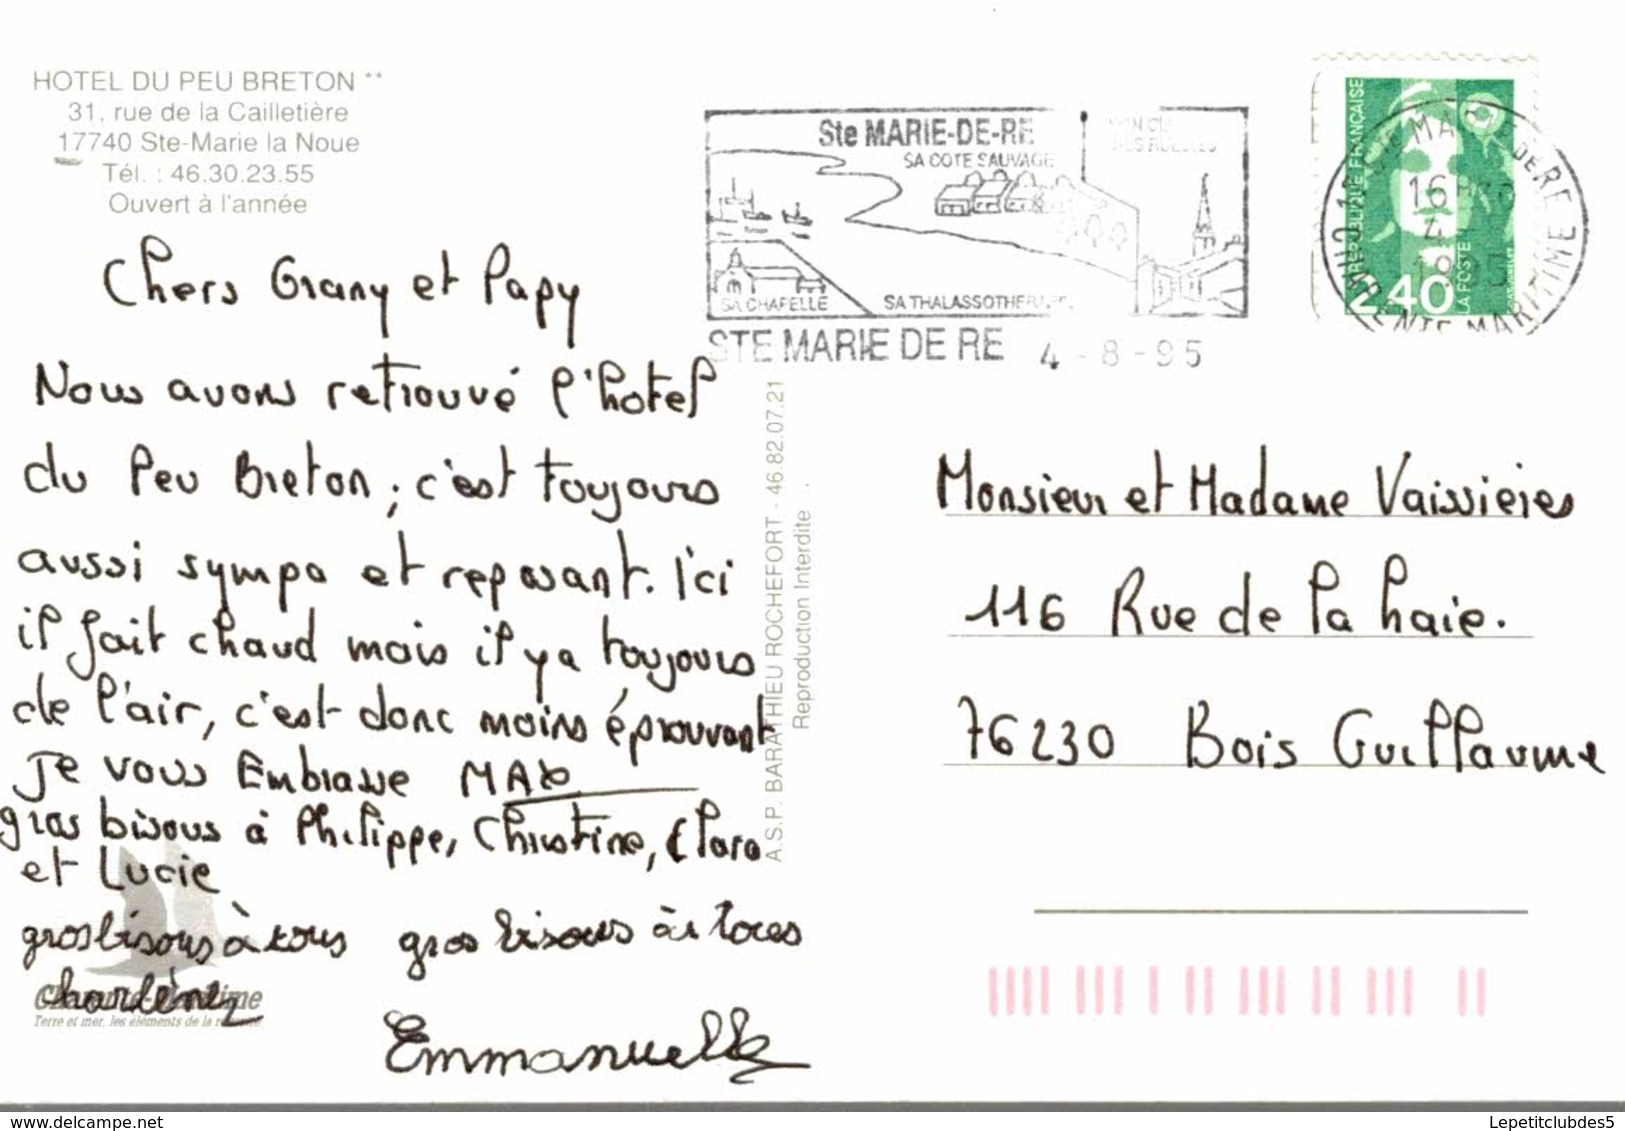 HOTEL DU PEU BRETON **
31, rue de la Cailletière
17740 Ste-Marie la Noue
Tél. : 46.30.23.55
Ouvert à l'année
Chers Grany et Papy
Nous avons retrouvé l'hotel
du Peu Breton ; c'est toujours
aussi sympa et reposant. Ici
il fait chaud mais il y a toujours
de l'air, c'est donc moins éprouvant
Je vous Embrasse MAX
gros bisous à Philippe, Christine, Clara
et Lucie
gros bisous à tous
Charlène
gros bisous à tous
Emmanuelle
Charente-Maritime
Terre et mer, les éléments de la
A.S.P. BARATHIEU ROCHEFORT - 46.82.07.21
Reproduction Interdite
Ste MARIE-DE-RE
SA COTE SAUVAGE
SA CHAPELLE
SA THALASSOTHERAPIE
STE MARIE DE RE 4-8-95
REPUBLIQUE FRANÇAISE
2,40
LA POSTE
16H
4
CHARENTE MARITIME
Monsieur et Madame Vaissieres
116 Rue de la haie.
76230 Bois Guillaume
www.delcampe.net
Lepetitclubdes5